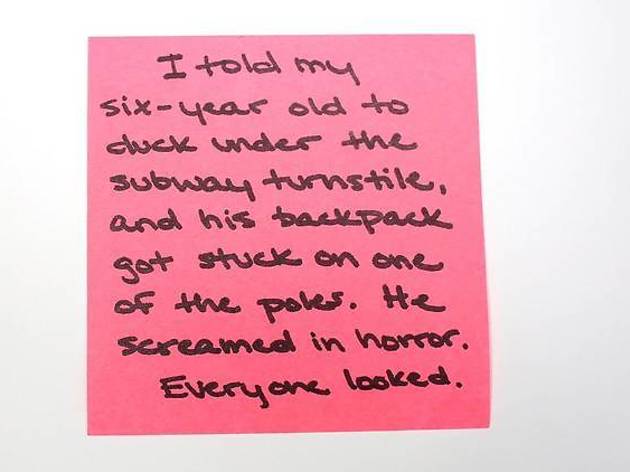 I told my
six-year old to
duck under the
subway turnstile,
and his backpack
got stuck on one
of the poles. He
screamed in horror.
Everyone looked.